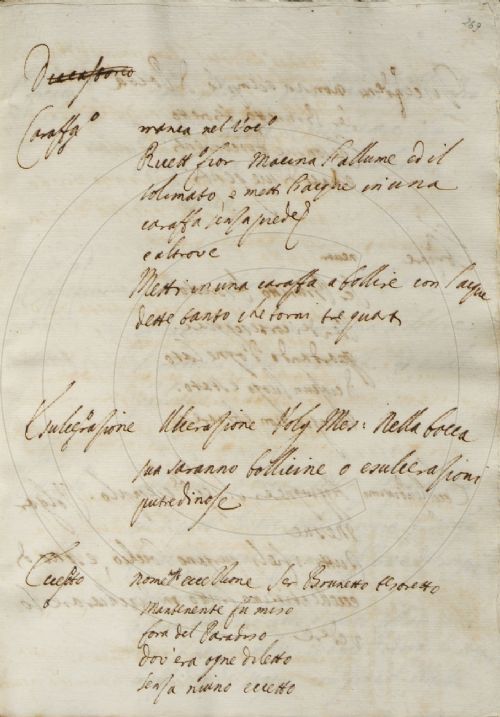 269
Caraffa manca nel Voc.
Ricett. Fior. Macina l'allume ed il
solimato e metti l'acque in una
caraffa senza piede
e altrove
Metti in una caraffa a bollire con l'acque
dette tanto che torni tre quarti
Esulcerazione Ulcerazione Volg. Mes: Nella bocca
sua saranno bollicine o esulcerazioni
putredinose
Eccetto nome eccezione Ser Brunetto Tesoretto
Mantenente fu miso
fora del Paradiso
dov'era ogne diletto
senza niuno eccetto